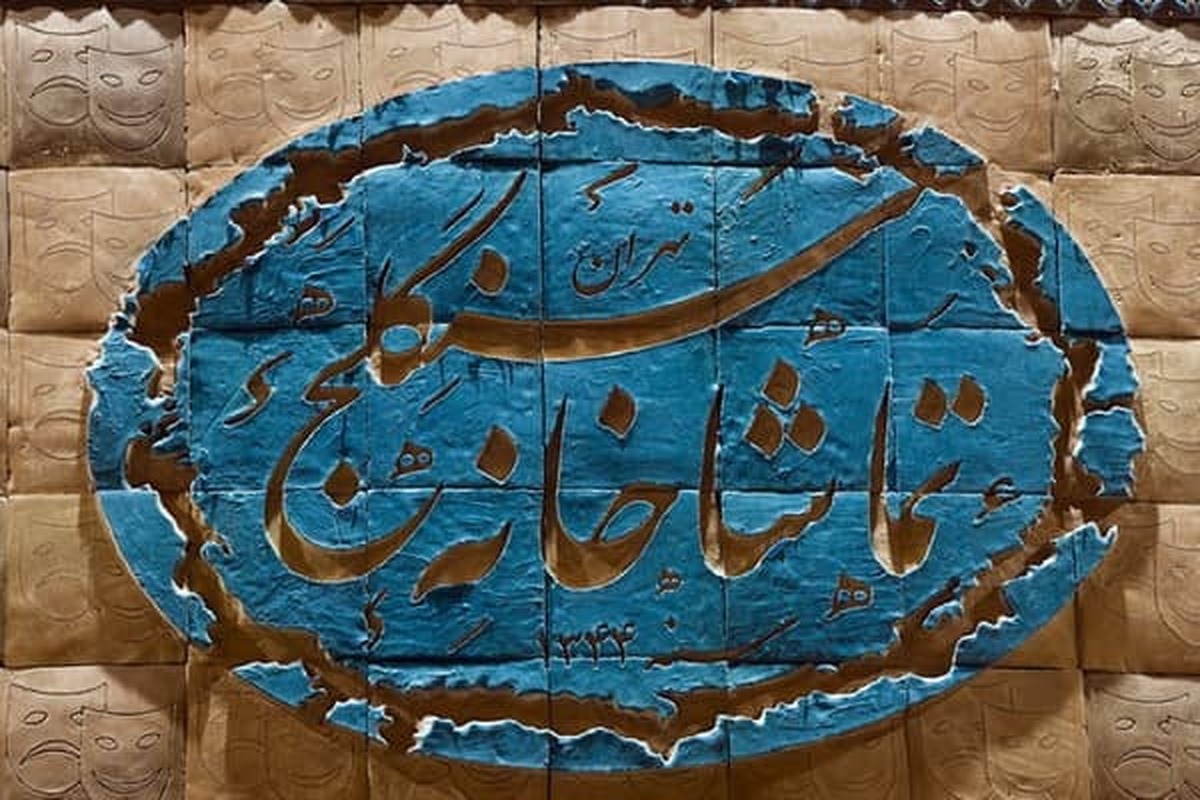 تماشاخانه
سنگلج
تهران
سنه ۱۳۴۴